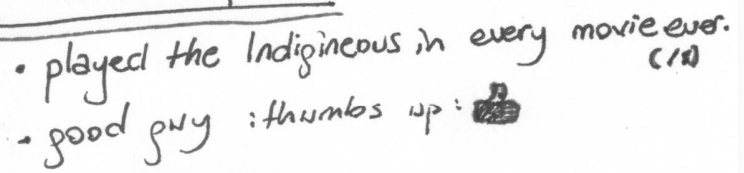 • played the Indigineous in every movie ever.
(/s)
• good guy :thumbs up: